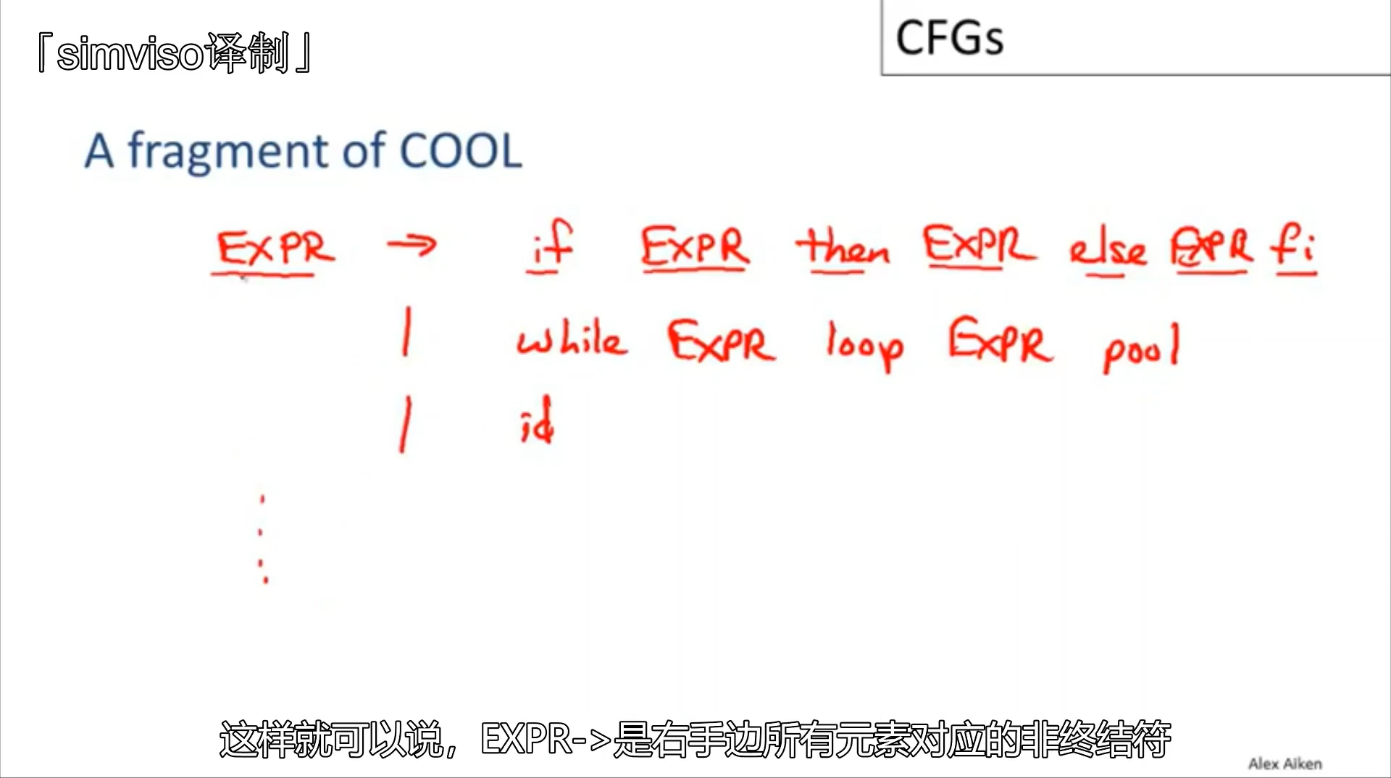 「simviso译制」
CFGs
A fragment of COOL
EXPR → if EXPR then EXPR else EXPR fi
| while EXPR loop EXPR pool
| id
这样就可以说，EXPR->是右手边所有元素对应的非终结符
Alex Aiken